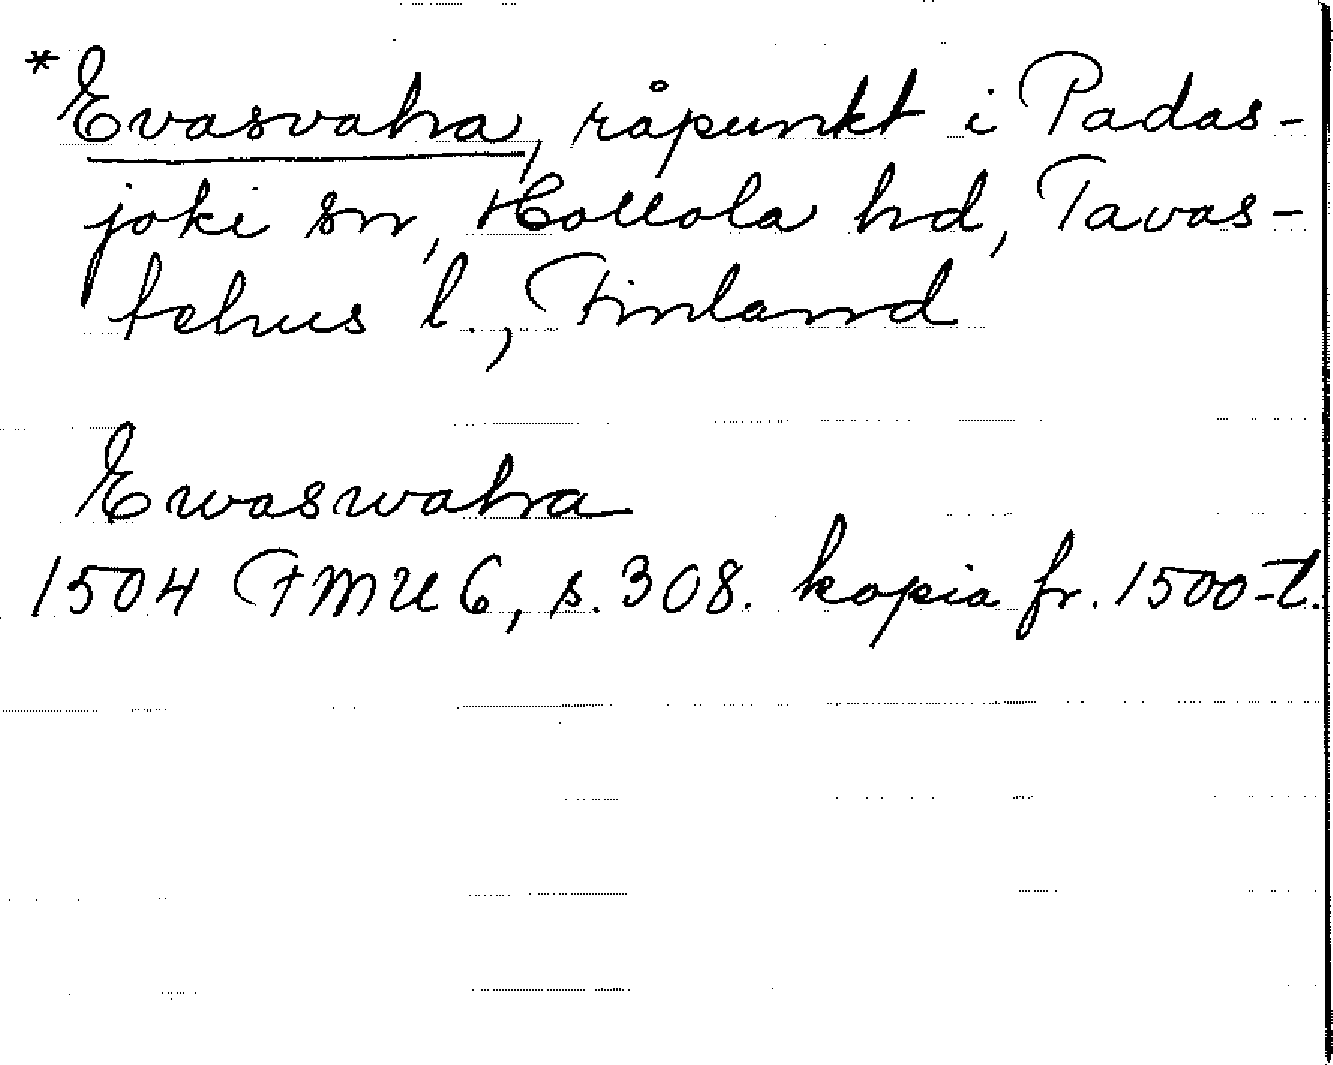 *Evasvaha, råpunkt i Padas-
joki sn, Hollola hd, Tavas-
tehus l., Finland
Ewaswaha
1504 FMU 6, s. 308. kopia fr. 1500-t.